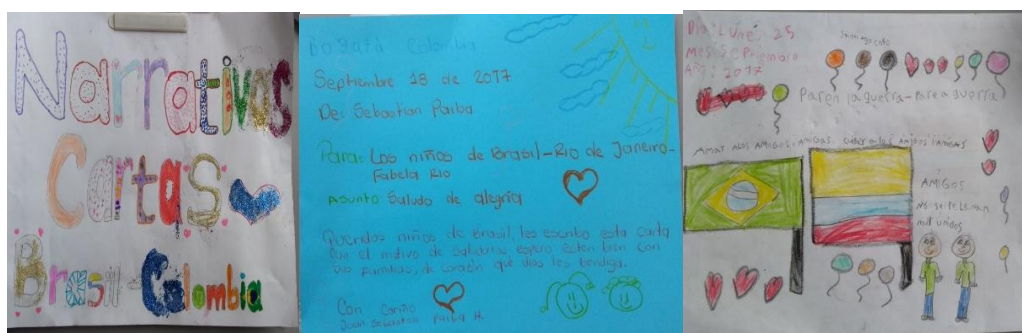 Narrativas
Cartas
Brasil - Colombia
Bogatá Colombia
Septiembre 18 de 2017
De: Sebastian Pariba
Para: Los niños de Brasil-Rio de Janeiro-
Fabela Rio
Asunto: Saludo de alegría
Queridos niños de Brasil les escribo esta carta
con el motivo de saludarlos espero esten bien con
sus familias, de corazón que Dios les bendiga.
Con cariño
Juan Sebastian Pariba H.
Dia: Lunes, 25
Mes: Septiembre
Año: 2017
Paren la guerra - paren a guerra
Amar a los amigos-amigas
AMIGOS
unidos